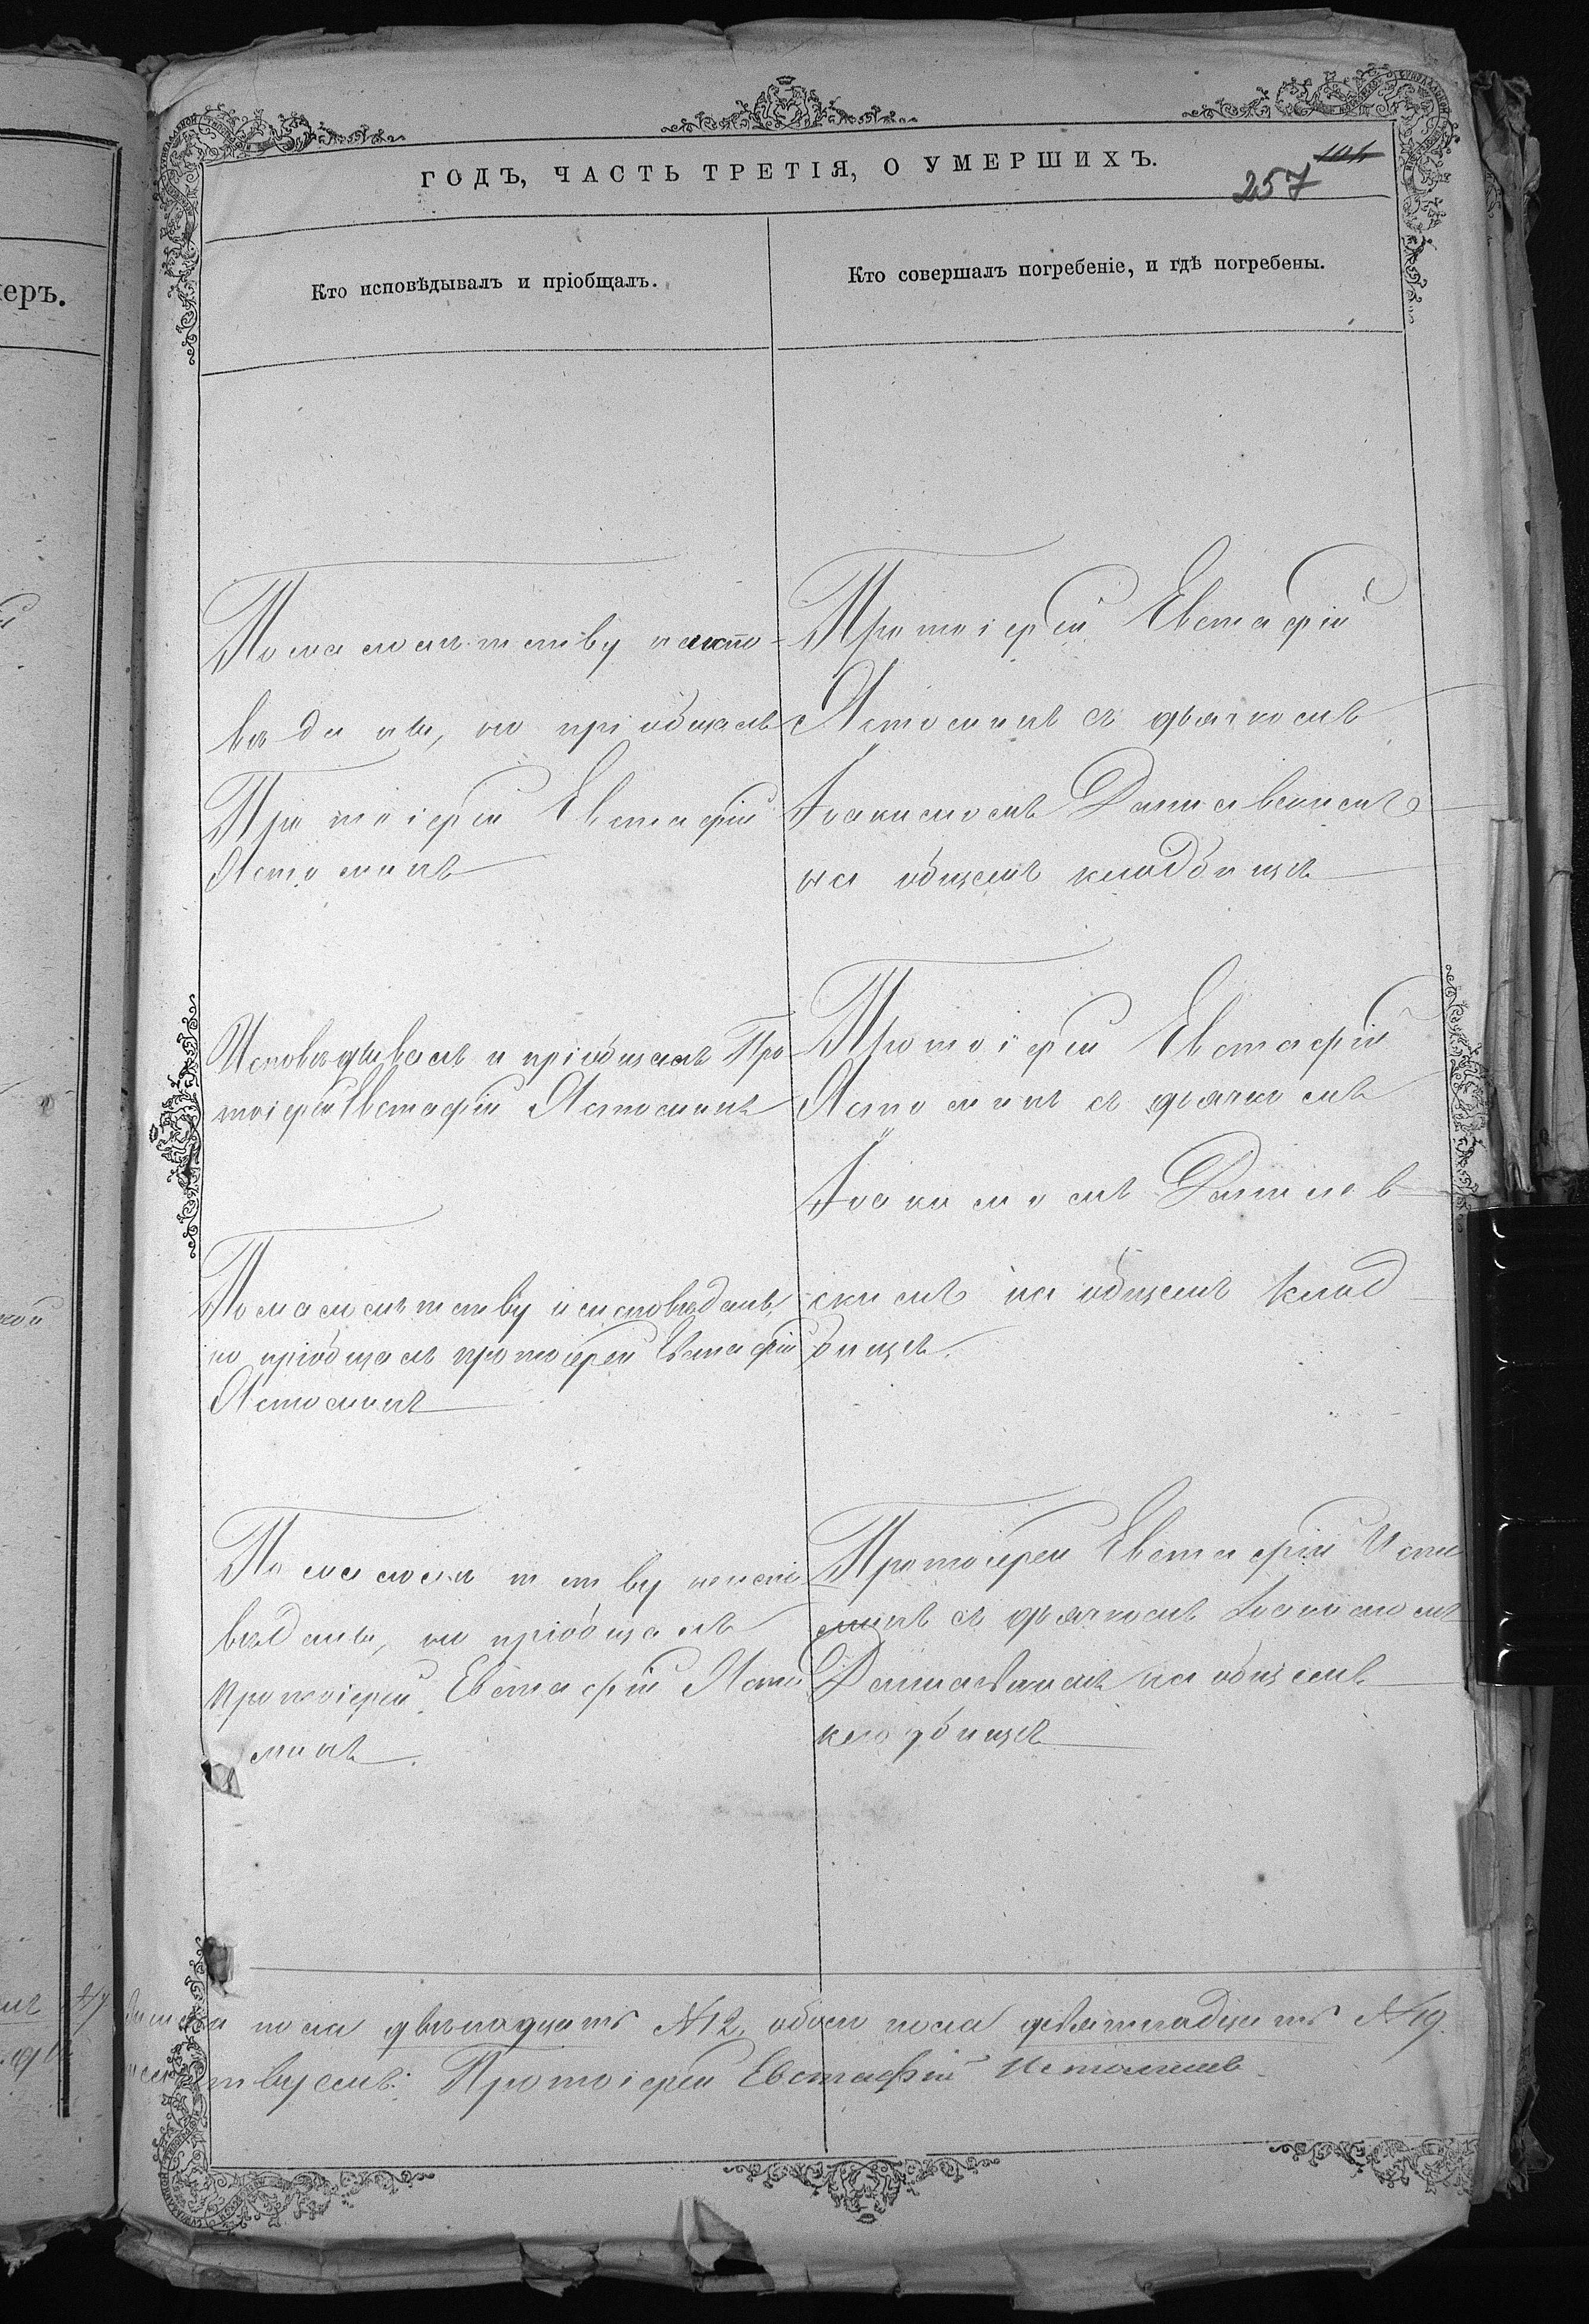 ГОДЪ, ЧАСТЬ ТРЕТІЯ, О УМЕРШИХЪ.
257
Кто исповѣдывалъ и пріобщалъ.
Кто совершалъ погребеніе, и гдѣ погребены.
По малолѣтству неиспо-
вѣданъ, но пріобщалъ
Протоіерей Евстафій
Истоминъ
Протоіерей Евстафій
Истоминъ съ дьячкомъ
Іоакимомъ Данилевскимъ
на общемъ кладбищѣ
Исповѣдывалъ и пріобщалъ Про-
тоіерей Евстафій Истоминъ
Протоіерей Евстафій
Истоминъ съ дьячкомъ
Іоакимомъ Данилев
скимъ на общемъ клад
бищѣ.
По малолѣтству неисповѣданъ,
но пріобщалъ протоіерей Евстафій
Истоминъ
По малолѣтству неиспо
вѣданъ, но пріобщалъ
Протоіерей Евстафій Исто
минъ.
Протоіерей Евстафій Исто
минъ съ дьячкомъ Іоакимомъ
Данилевскимъ на общемъ
кладбищѣ
пола двѣнадцать №12, обоего пола девятнадцать №19.
Протоіерей Евстафій Истоминъ
іеръ.